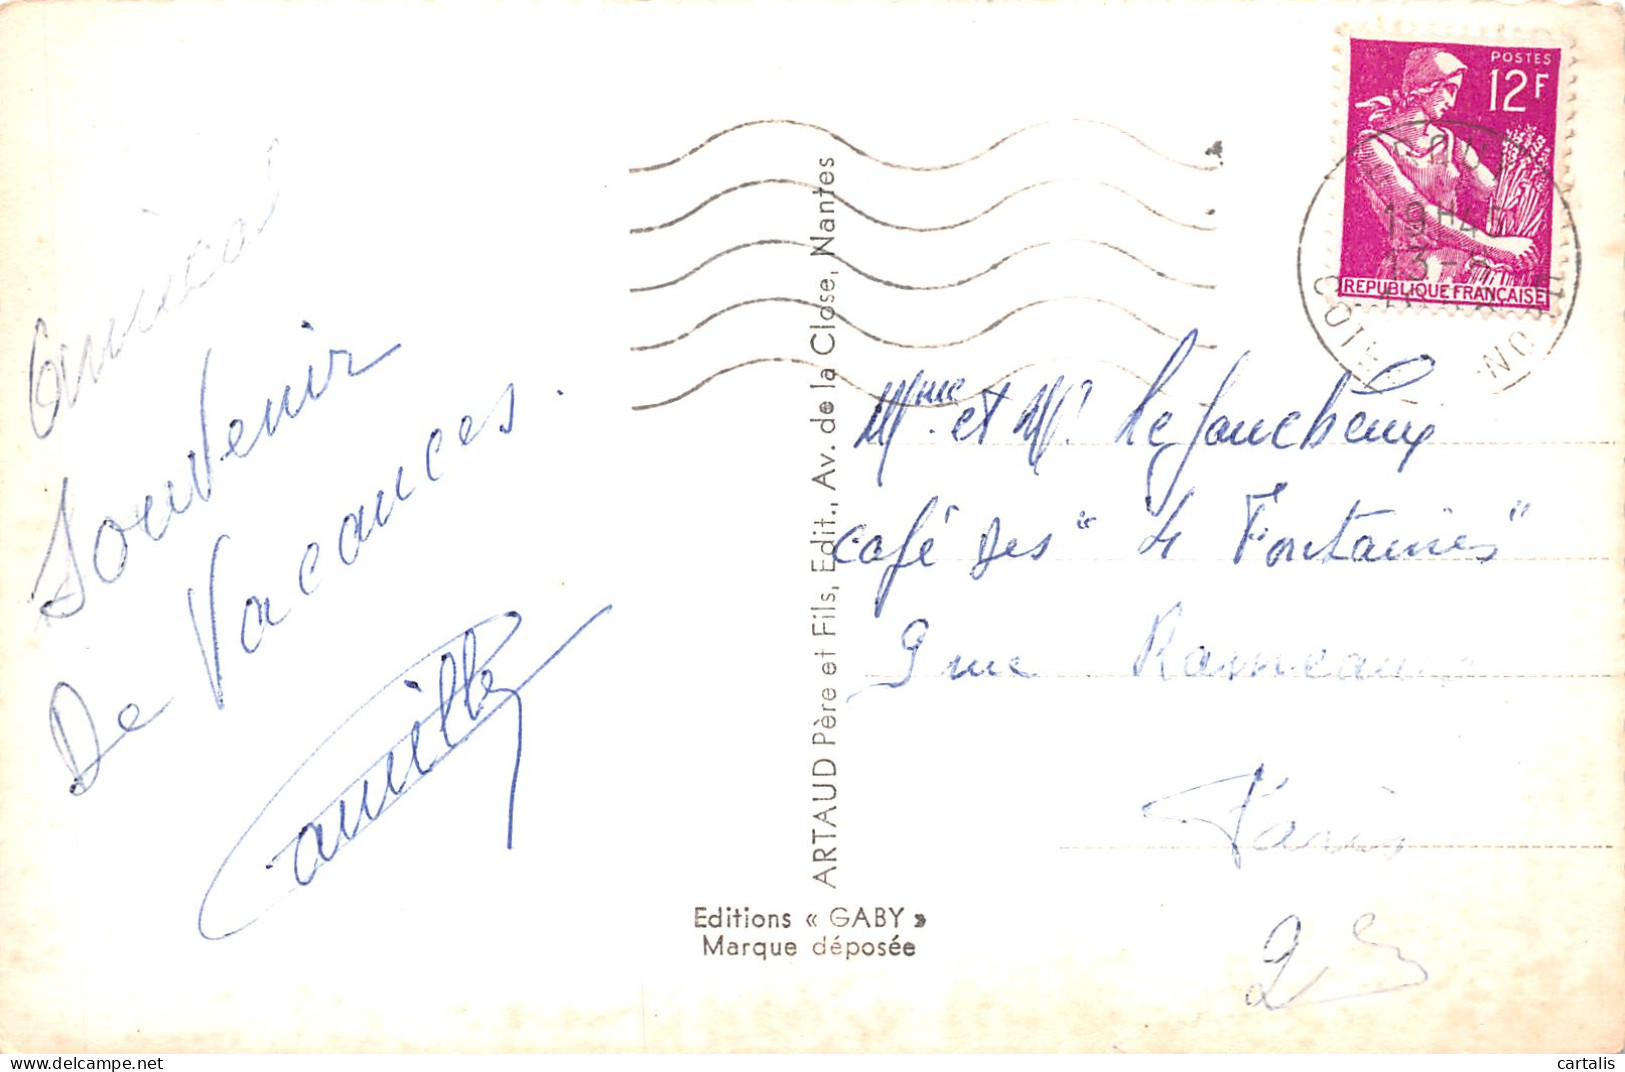 Amical
Souvenir
De Vacances.
Camille
ARTAUD Père et Fils, Edit., Av. de la Close, Nantes
Editions « GABY »
Marque déposée
POSTES
12F
REPUBLIQUE FRANÇAISE
19H45
13-
Mme et Mr. Lefaucheux
Café Des " 4 Fontaines "
9 rue Rameau
Paris
2e
delcampe.net
cartalis